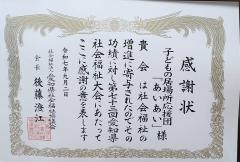 感謝状
子どもの居場所応援団
あいあい 様
貴会は社会福祉の
増進に寄与されたのでその
功績に対し第七十三回愛知県
社会福祉大会にあたって
ここに感謝の意を表します
令和七年九月二日
社会福祉法人愛知県社会福祉協議会
会長 後藤澄江